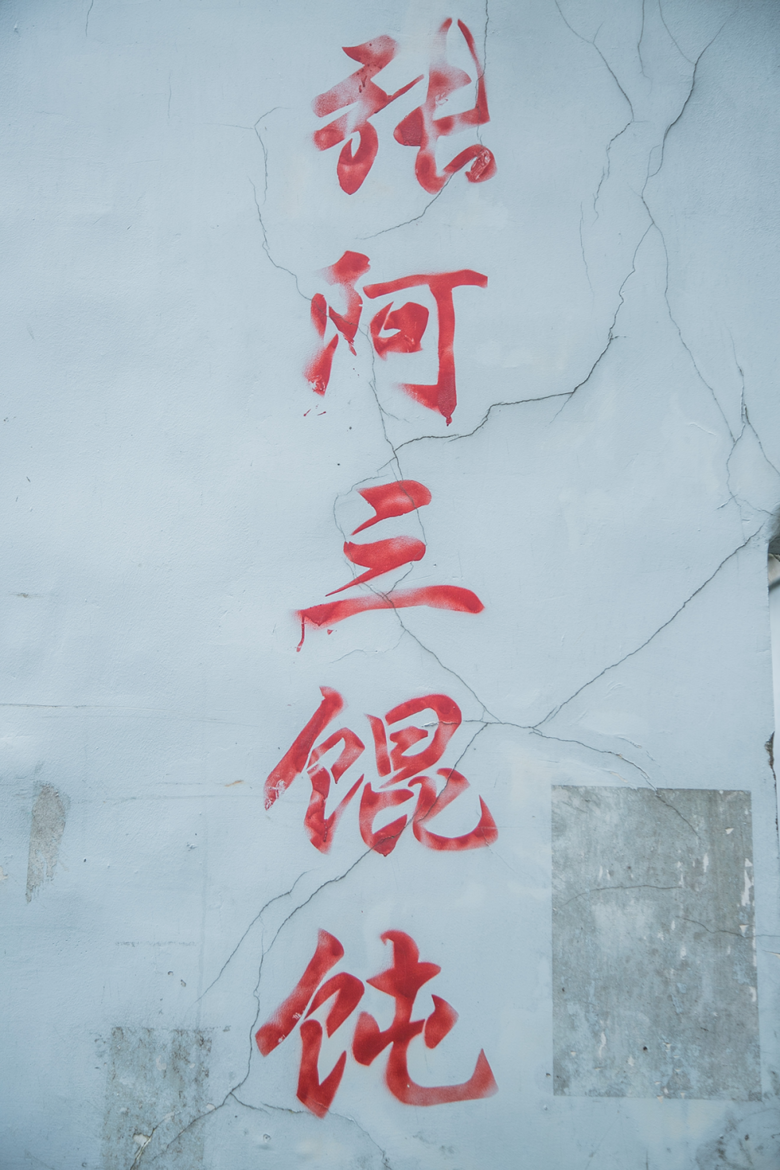 张阿三馄饨